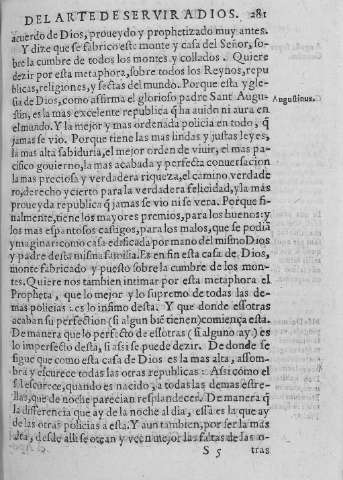 DEL ARTE DE SERVIR A DIOS. 281
acuerdo de Dios, proueydo y prophetizado muy antes.
Y dize que se fabrico este monte y casa del Señor, so-
bre la cumbre de todos los montes y collados. Quiere
dezir por esta metaphora, sobre todos los Reynos, repu
blicas, religiones, y sectas del mundo. Porque esta ygle-
sia de Dios, como affirma el glorioso padre Sant Augu-
Augustinus.
stin, es la mas excelente republica q̃ ha auido ni aura en
el mundo. Y la mejor y mas ordenada policia en todo, q̃
jamas se vio. Porque tiene las mas lindas y justas leyes,
la mas alta sabiduria, el mejor orden de viuir, el mas pa-
cifico gouierno, la mas acabada y perfecta conuersacion
la mas preciosa y verdadera riqueza, el camino verdade
ro, derecho y cierto para la verdadera felicidad, y la más
proueyda republica q̃ jamas se vio ni se vera. Porque fi-
nalmente, tiene los mayores premios, para los buenos: y
los mas espantosos castigos, para los malos, que se podiã
ymaginar: como casa edificada por mano del mismo Dios
y padre desta misma familia. Es en fin esta casa de Dios,
monte fabricado y puesto sobre la cumbre de los mon-
tes. Quiere nos tambien intimar por esta metaphora el
Propheta, que lo mejor y lo supremo de todas las de-
mas policias: es lo infimo desta. Y que donde essotras
acaban su perfection (si algun biẽ tienen) comiença esta.
De manera que lo perfecto de essotras (si alguno ay) es
lo imperfecto desta, si assi se puede dezir. De donde se
sigue que como esta casa de Dios es la mas alta, assom-
bra y escurece todas las otras republicas: Assi como el
sol escurece, quando es nacido, a todas las demas estre-
llas, que de noche parecian resplandecer. De manera q̃
la differencia que ay de la noche al dia, essa es la que ay
de las otras policias a esta. Y aun tambien, por ser la mas
alta, desde alli se otean y veen mejor las faltas de las o-
S 5 tras